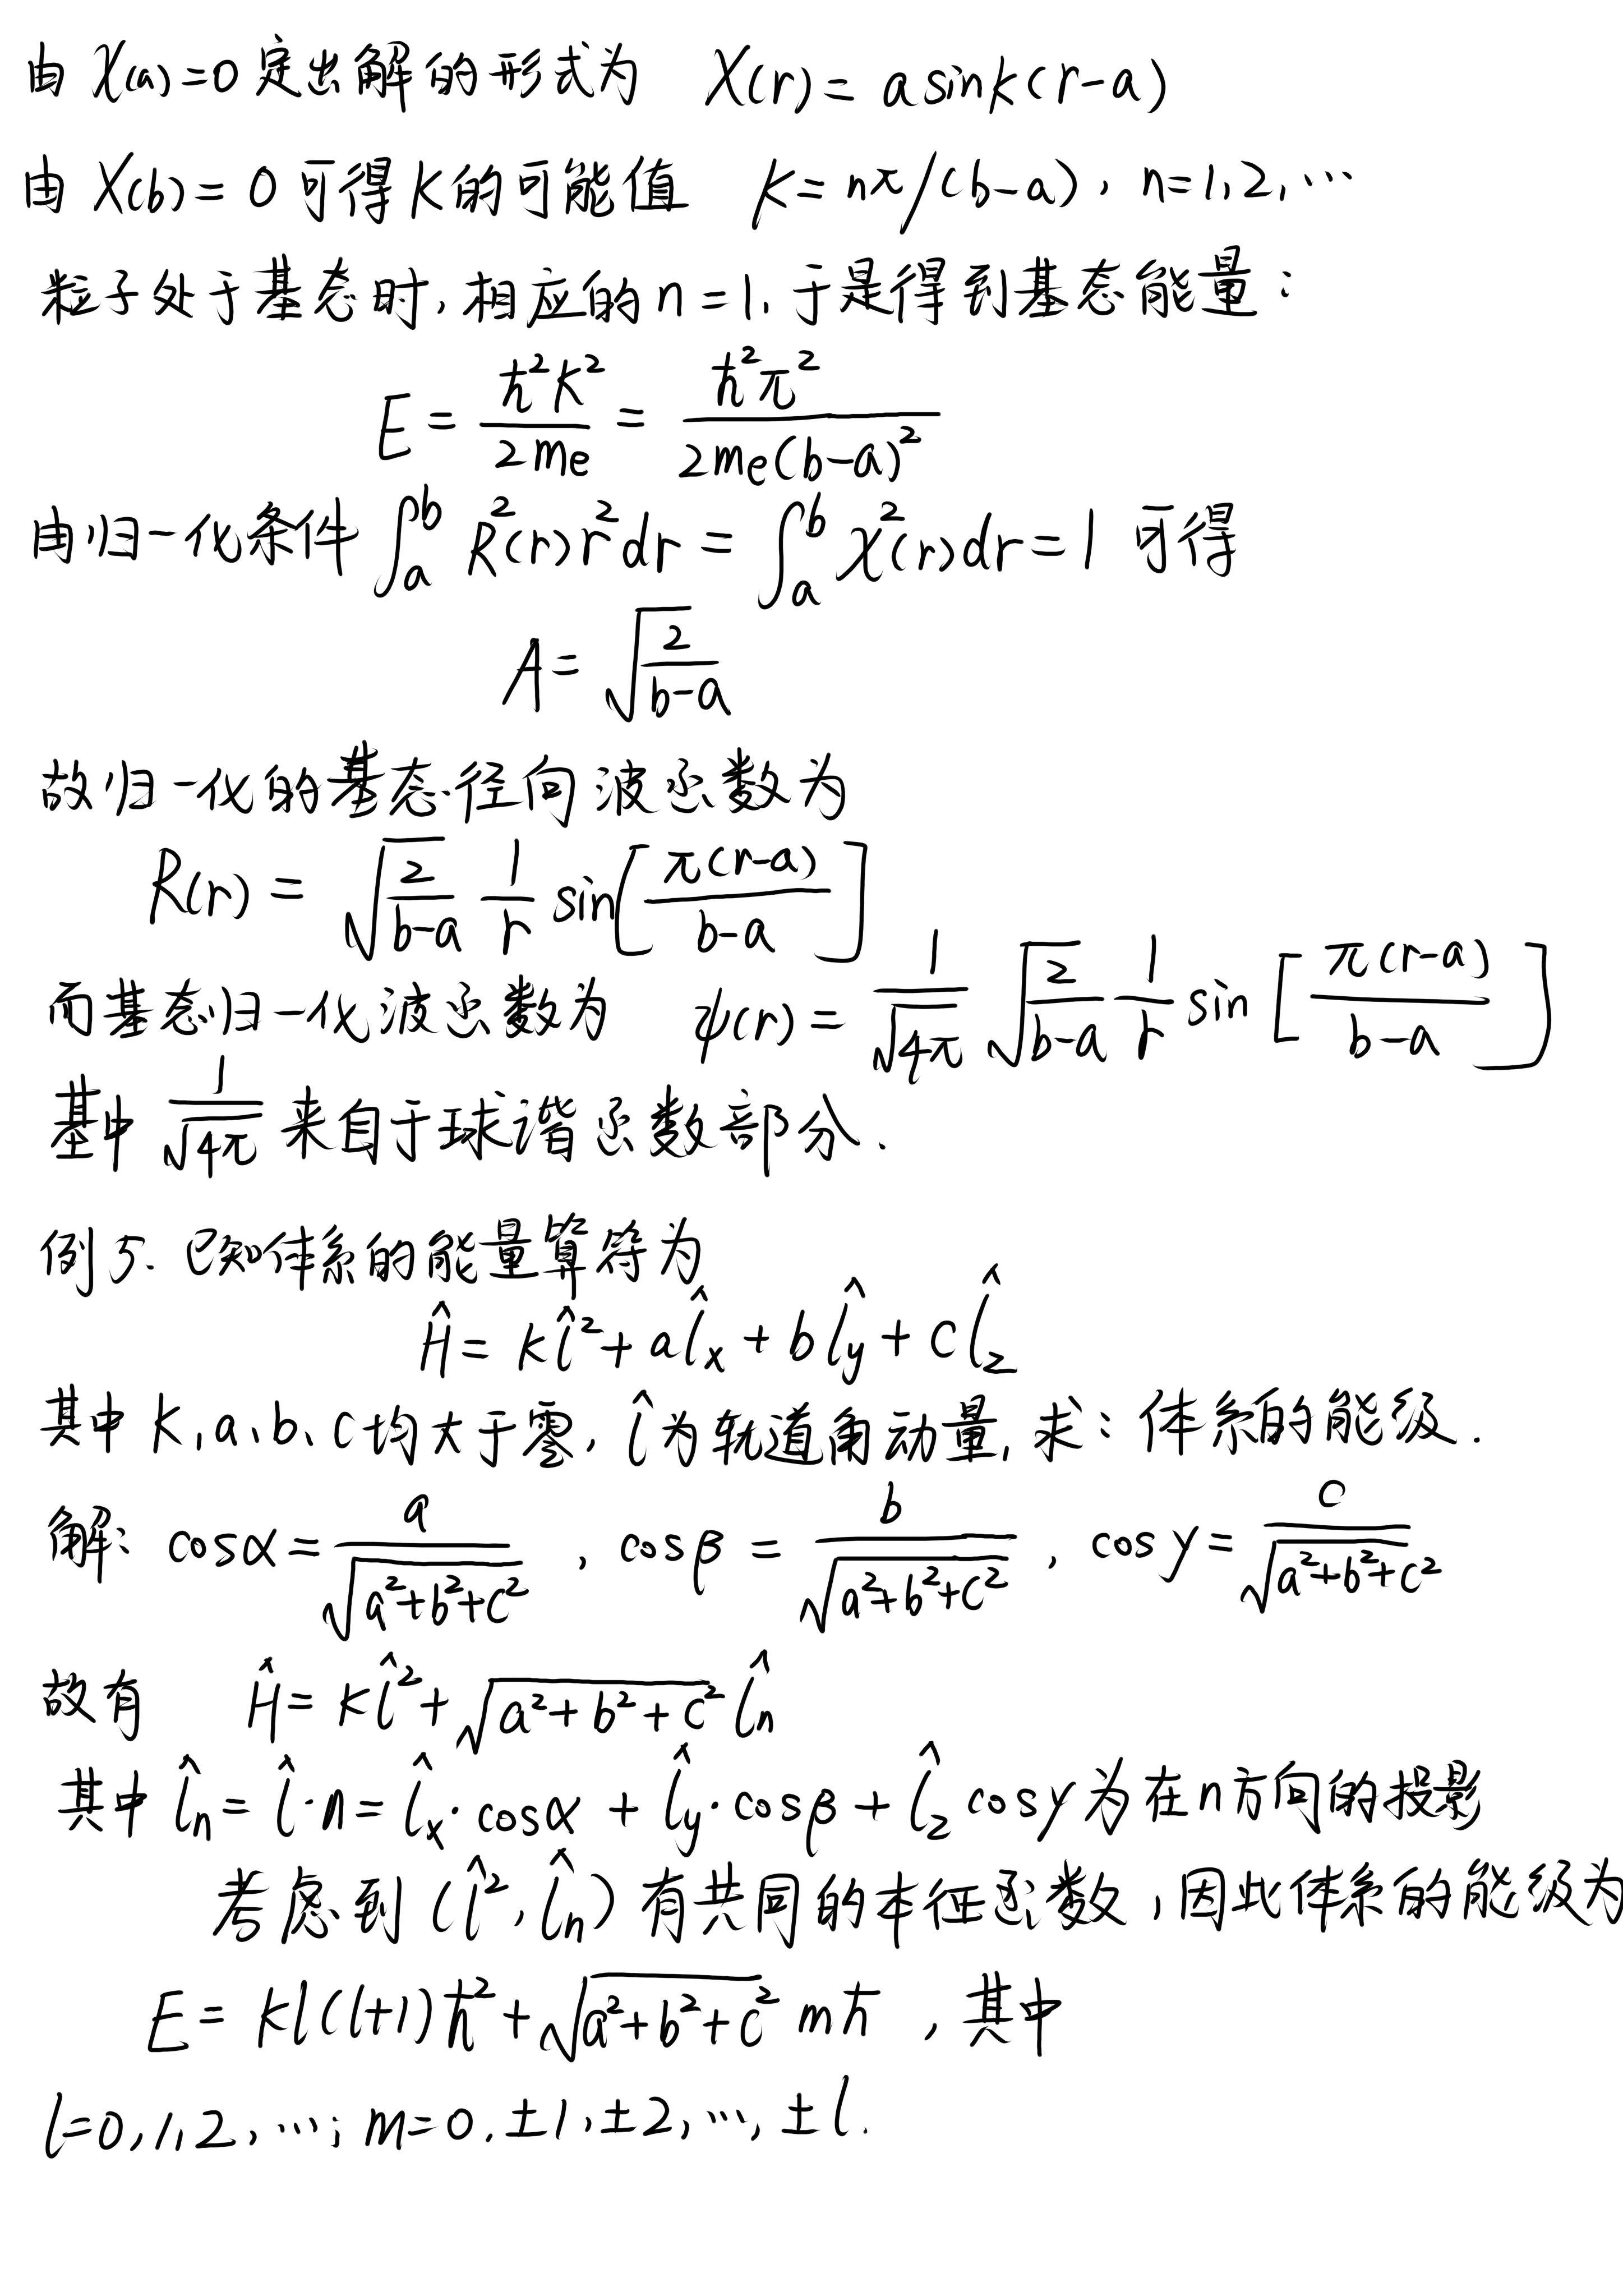 由 χ(a)=0 定出解的形式为 χ(r)= a sink(r-a)
由 χ(b)=0 可得k的可能值 k=nπ/(b-a), n=1,2,…
粒子处于基态时,相应的n=1,于是得到基态能量:
E = \frac{ħ^2k^2}{2me} = \frac{ħ^2π^2}{2me(b-a)^2}
由归一化条件 \int_a^b R^2(r)r^2dr = \int_a^b χ^2(r)dr=1 可得
A = \sqrt{\frac{2}{b-a}}
故归一化的基态径向波函数为
R(r) = \sqrt{\frac{2}{b-a}} \frac{1}{r} sin[\frac{π(r-a)}{b-a}]
而基态归一化波函数为 ψ(r) = \frac{1}{\sqrt{4π}} \sqrt{\frac{2}{b-a}} \frac{1}{r} sin[\frac{π(r-a)}{b-a}]
基中 \frac{1}{\sqrt{4π}} 来自于球谐函数部分.
例5. 已知体系的能量算符为
\hat{H} = k\hat{l}^2 + a\hat{l}_x + b\hat{l}_y + c\hat{l}_z
其中k,a、b、c均大于零, \hat{l}为轨道角动量,求:体系的能级.
解: cosα = \frac{a}{\sqrt{a^2+b^2+c^2}} , cosβ = \frac{b}{\sqrt{a^2+b^2+c^2}} , cosγ = \frac{c}{\sqrt{a^2+b^2+c^2}}
故有 \hat{H} = k\hat{l}^2 + \sqrt{a^2+b^2+c^2} \hat{l}_n
其中 \hat{l}_n = \hat{l}·n = \hat{l}_x·cosα + \hat{l}_y·cosβ + \hat{l}_z cosγ 为在n方向的投影
考虑到 (\hat{l}^2, \hat{l}_n) 有共同的本征函数,因此体系的能级为
E = kl(l+1)ħ^2 + \sqrt{a^2+b^2+c^2} mħ ,其中
l=0,1,2,…; m=0,±1,±2,…,±l.